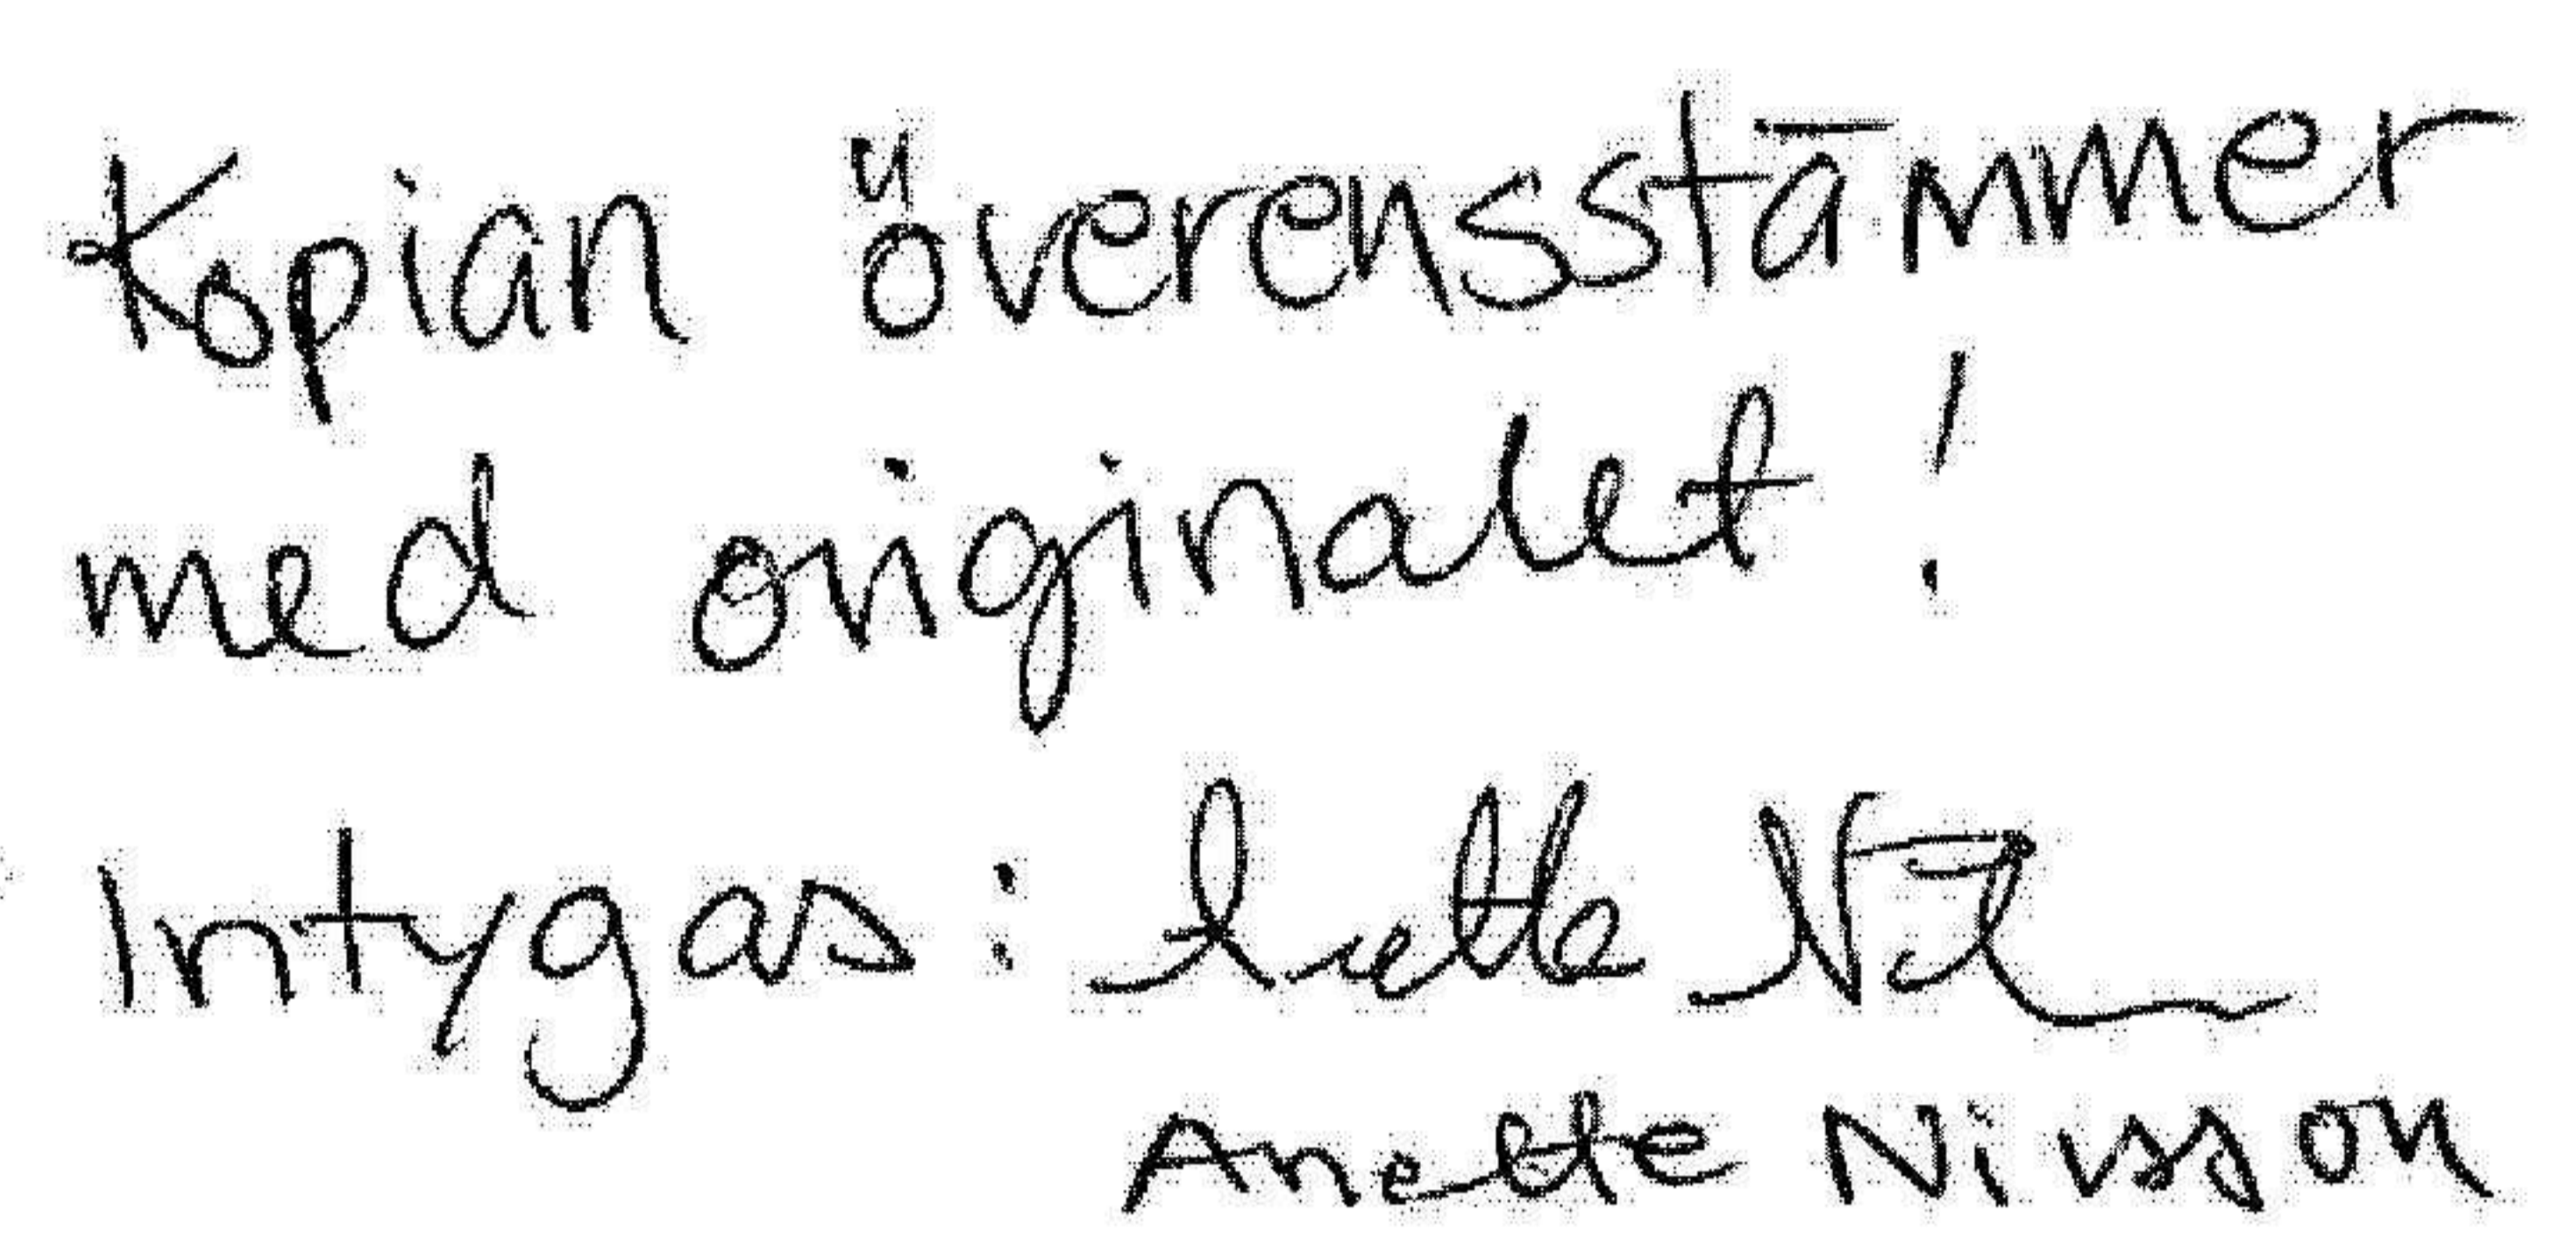 Kopian överensstämmer
med originalet!
Intygas: Anette
Anette Nilsson